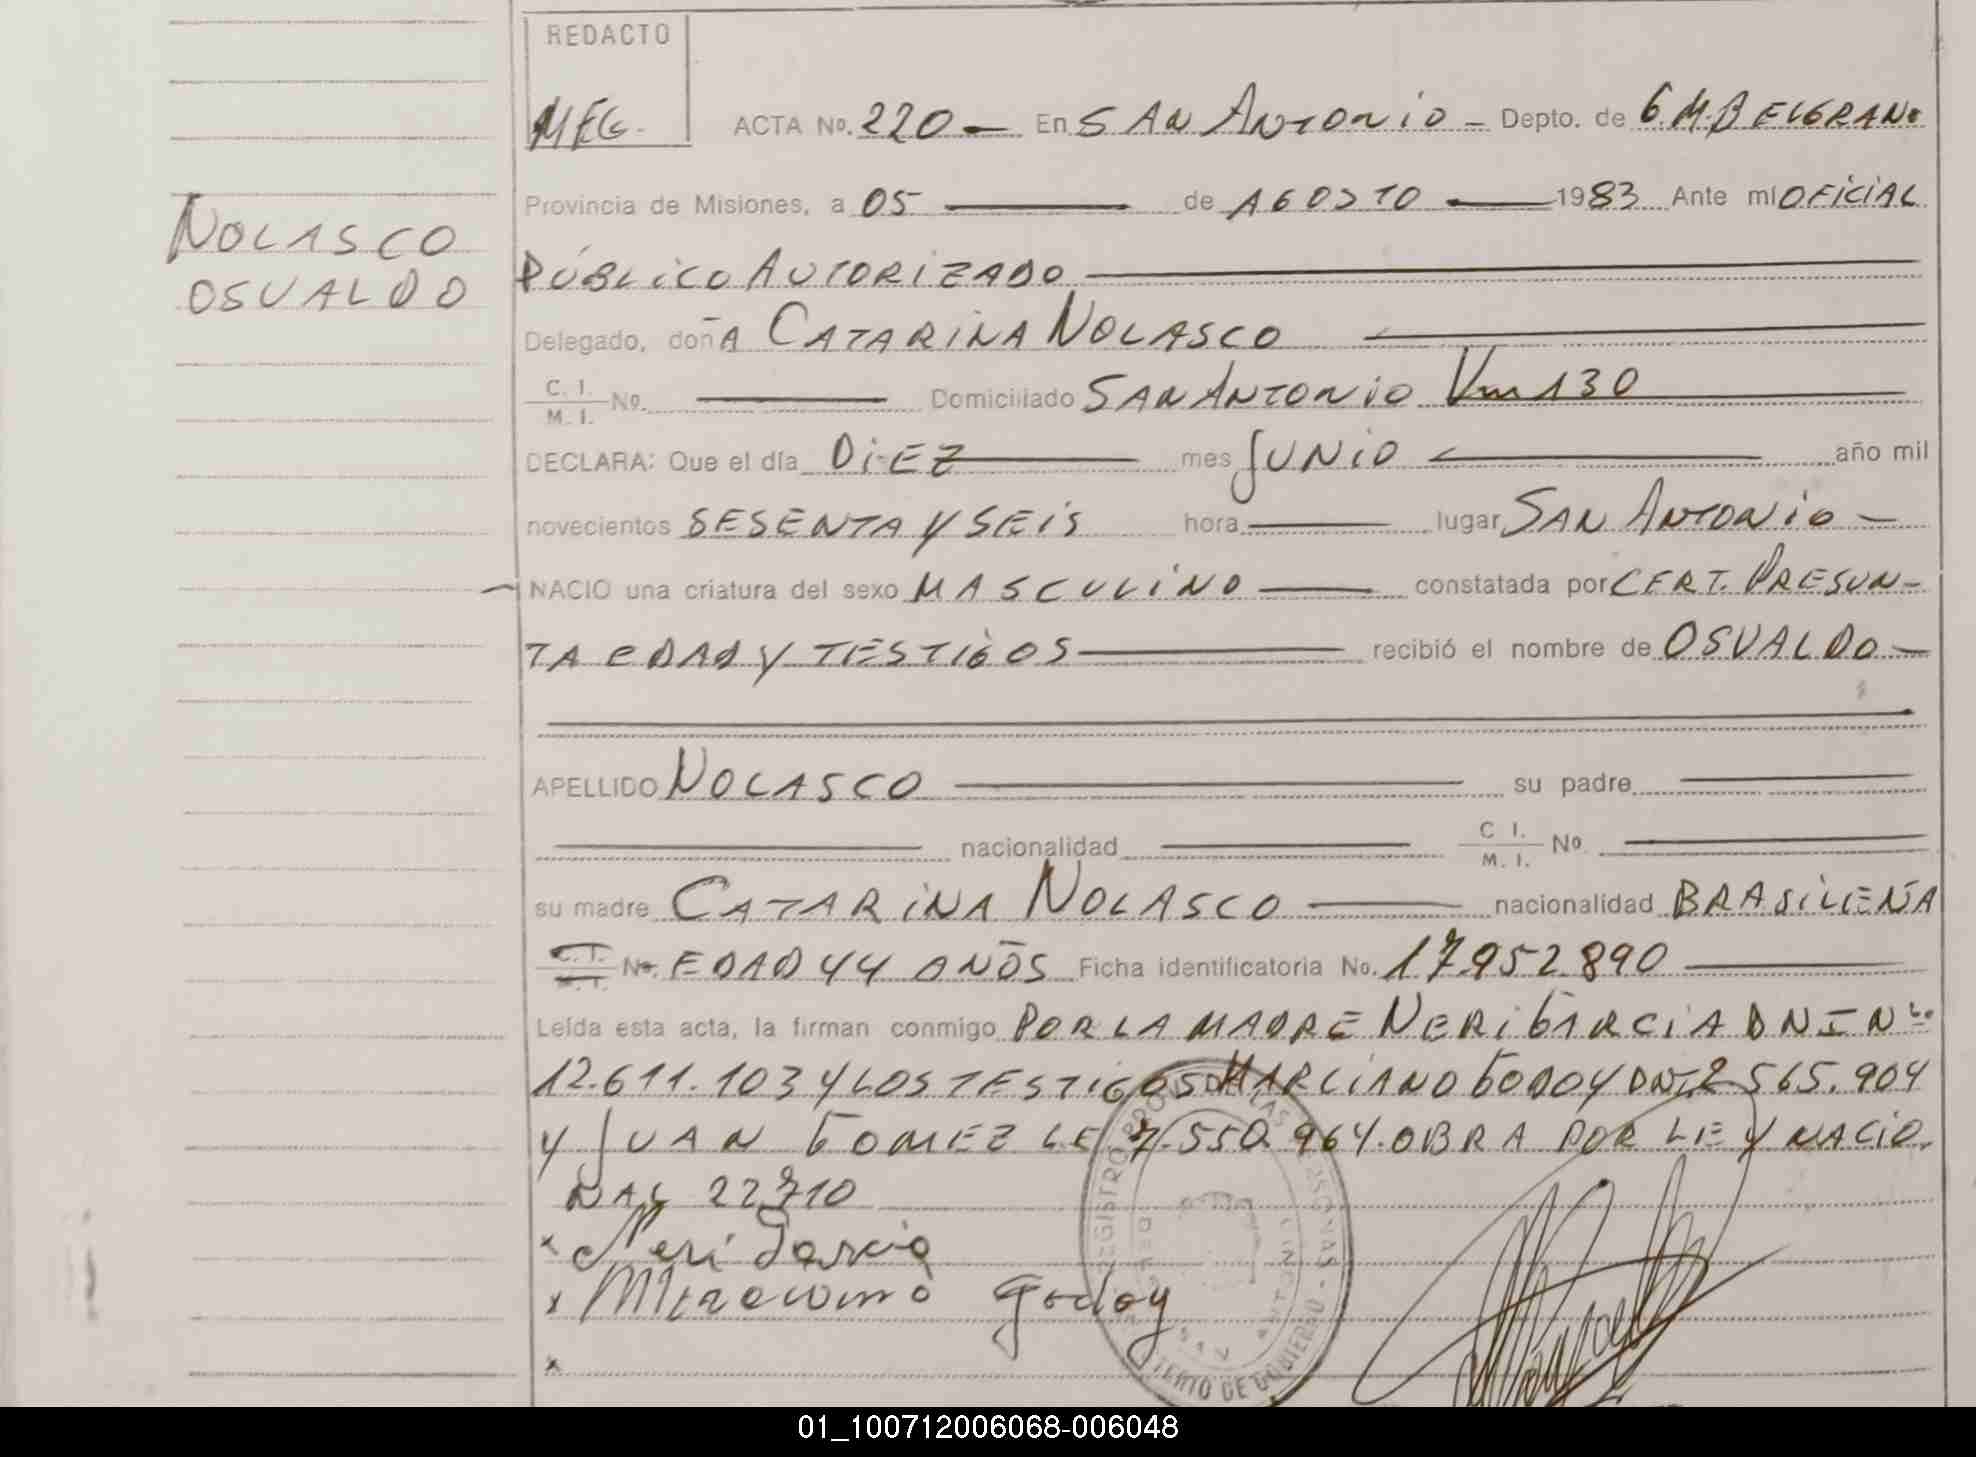 REDACTO
MEG.
ACTA No. 220 En SAN ANTONIO Depto. de G.M.BELGRANO
Provincia de Misiones, a 05 de AGOSTO 1983 Ante mí OFICIAL
NOLASCO
OSVALDO
PÚBLICO AUTORIZADO
Delegado, doñA CATARINA NOLASCO
C. I.
M. I. No. Domiciliado SAN ANTONIO Km 130
DECLARA: Que el día DIEZ mes JUNIO año mil
novecientos SESENTA Y SEIS hora lugar SAN ANTONIO
NACIO una criatura del sexo MASCULINO constatada por CERT. PRESUN-
TA EDAD Y TESTIGOS recibió el nombre de OSVALDO
APELLIDO NOLASCO su padre
nacionalidad C I. M. I. No.
su madre CATARINA NOLASCO nacionalidad BRASILEÑA
C. I. No. EDAD 44 AÑOS Ficha identificatoria No. 17.952.890
Leída esta acta, la firman conmigo POR LA MADRE NERI GARCIA DNI Nº
12.611.103 Y LOS TESTIGOS MARCIANO GODOY DNI 2.565.904
Y JUAN GOMEZ LE 7.550.964. OBRA POR LEY NACIO.
NAL 22710
x Neri Garcia
x Godoy
x
REGISTRO PROV. DE LAS PERSONAS
SAN ANTONIO
MINISTERIO DE GOBIERNO
01_100712006068-006048